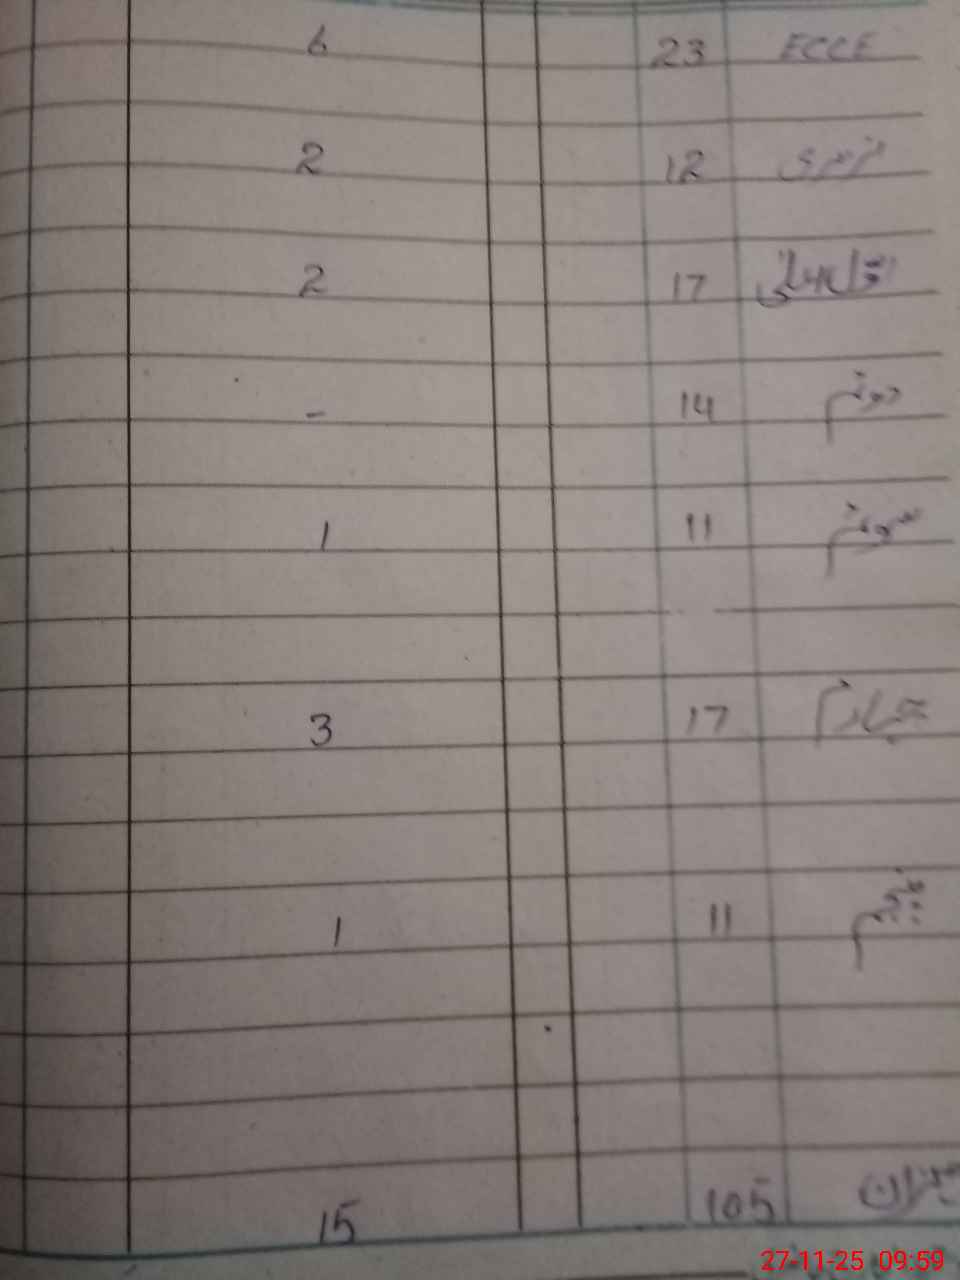 ECCE 23 6
نرسری 12 2
اول اعلیٰ 17 2
دوئم 14 -
سوئم 11 1
چہارم 17 3
پنجم 11 1
میزان 105 15
27-11-25 09:59